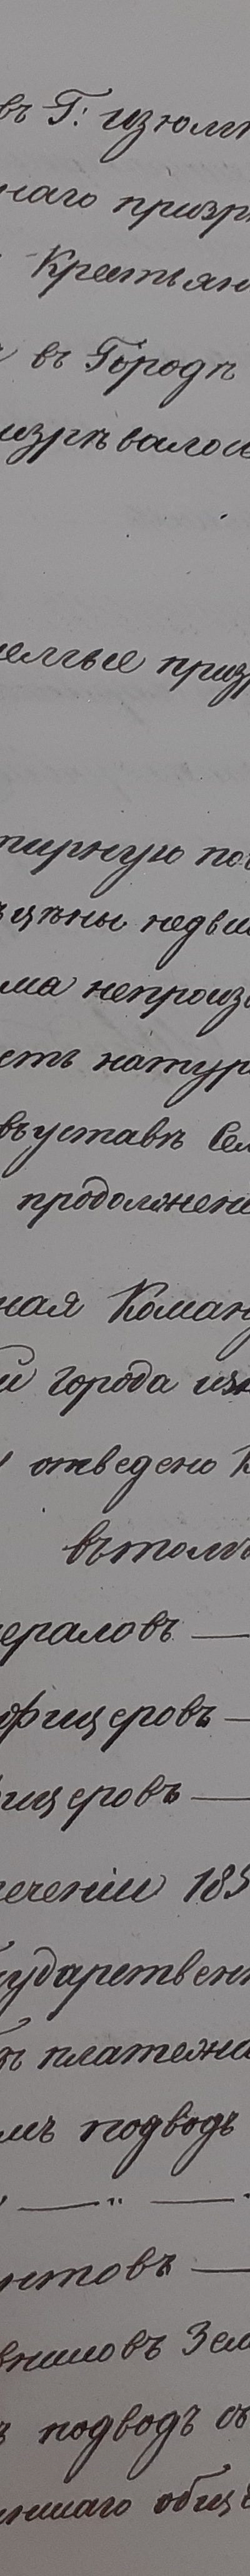 въ Г: изюм
наго призр
Крестьян
въ Городѣ
изрѣвалос
емые приз
тирную по
ъ цѣны недви
ма непроиз
сть натур
въ уставѣ
продолжені
ная Коман
и города из
отведено К
въ томъ
нераловъ —
офицеровъ —
фицеровъ —
течении 185
сударственн
ъ платежа
мъ подводъ
" — " —
нтовъ —
вниковъ Зем
ъ подводъ съ
ншаго общ